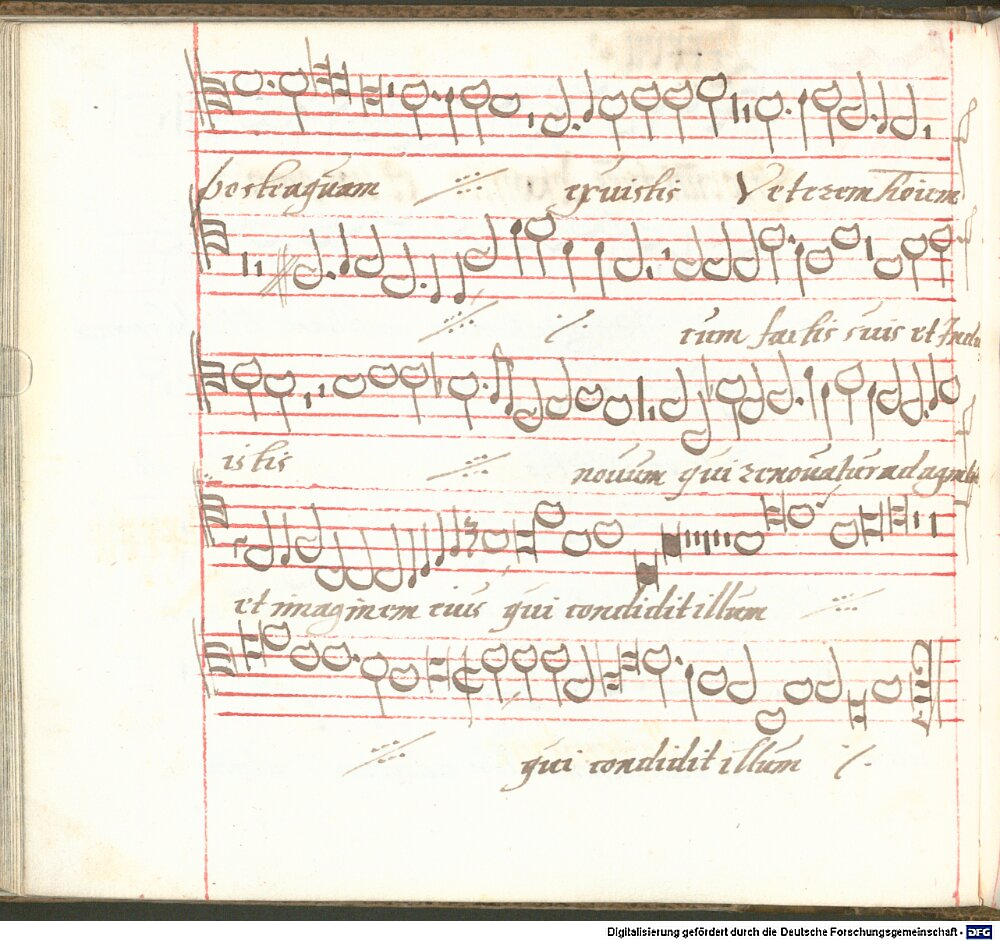 posteaquam exuistis Veterem hoīem
cum factis suis et Indu
istis novum qui renovatur ad agniti
et imaginem eius qui condidit illum
qui condidit illum
Digitalisierung gefördert durch die Deutsche Forschungsgemeinschaft - DFG